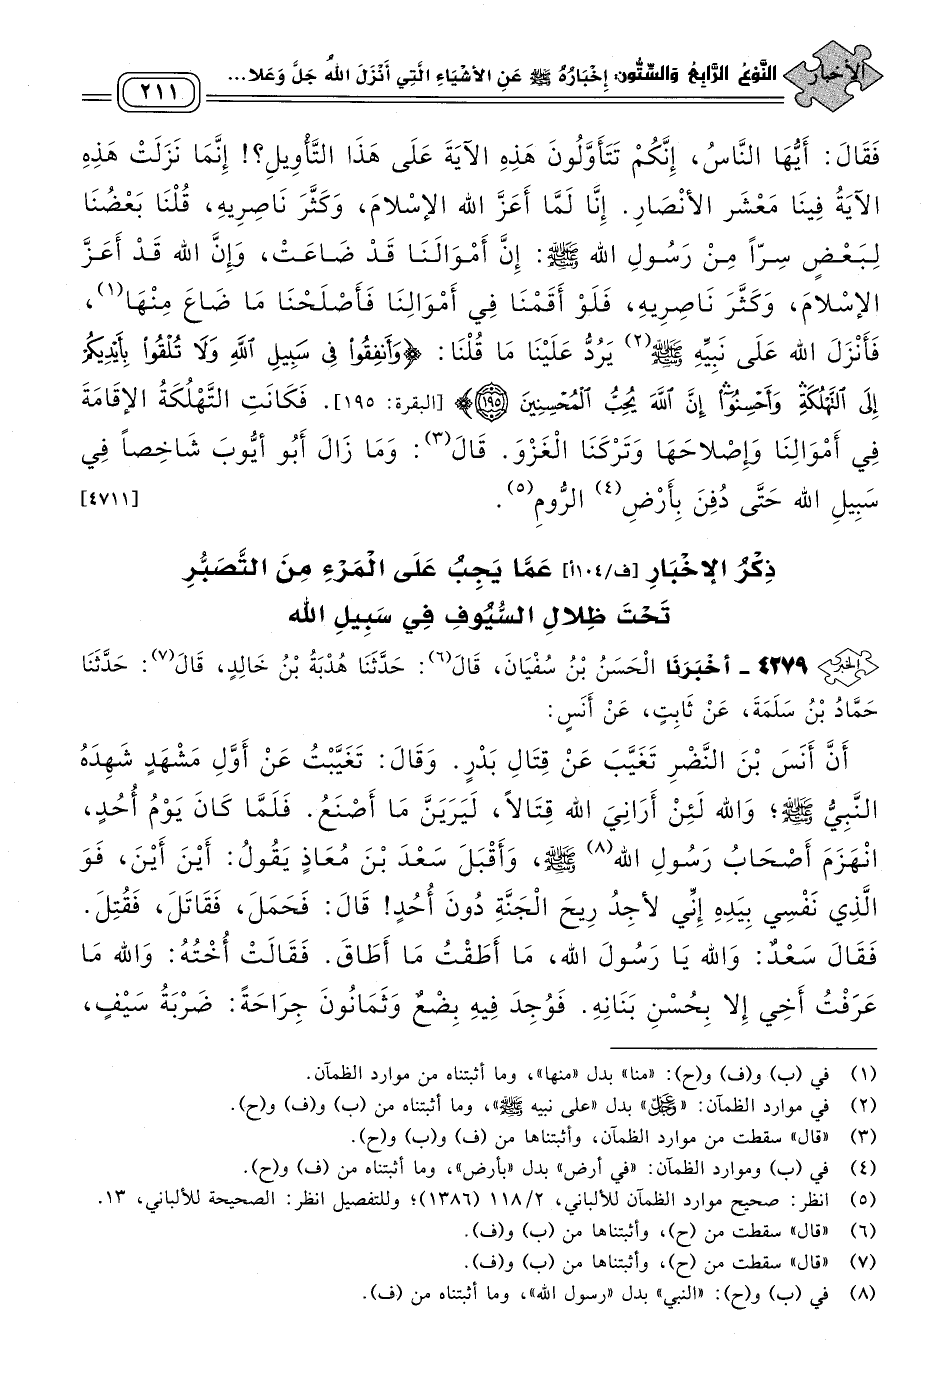 الأخبار
النَّوْعُ الرَّابِعُ وَالسِّتُّونَ: إِخْبَارُهُ ﷺ عَنِ الأَشْيَاءِ الَّتِي أَنْزَلَ اللهُ جَلَّ وَعَلا...
٢١١
فَقَالَ: أَيُّهَا النَّاسُ، إِنَّكُمْ تَتَأَوَّلُونَ هَذِهِ الآيَةَ عَلَى هَذَا التَّأْوِيلِ؟! إِنَّمَا نَزَلَتْ هَذِهِ
الآيَةُ فِينَا مَعْشَر الأَنْصَارِ. إِنَّا لَمَّا أَعَزَّ الله الإِسْلامَ، وَكَثَّرَ نَاصِرِيهِ، قُلْنَا بَعْضُنَا
لِبَعْضٍ سِرّاً مِنْ رَسُولِ الله ﷺ: إِنَّ أَمْوَالَنَا قَدْ ضَاعَتْ، وَإِنَّ الله قَدْ أَعَزَّ
الإِسْلامَ، وَكَثَّرَ نَاصِرِيهِ، فَلَوْ أَقَمْنَا فِي أَمْوَالِنَا فَأَصْلَحْنَا مَا ضَاعَ مِنْهَا(١)،
فَأَنْزَلَ الله عَلَى نَبِيِّهِ ﷺ(٢) يَرُدُّ عَلَيْنَا مَا قُلْنَا: ﴿وَأَنفِقُوا۟ فِى سَبِيلِ ٱللَّهِ وَلَا تُلْقُوا۟ بِأَيْدِيكُمْ
إِلَى ٱلتَّهْلُكَةِ ۛ وَأَحْسِنُوٓا۟ ۛ إِنَّ ٱللَّهَ يُحِبُّ ٱلْمُحْسِنِينَ ۝١٩٥﴾ [البقرة: ١٩٥]. فَكَانَتِ التَّهْلُكَةُ الإِقَامَةَ
فِي أَمْوَالِنَا وَإِصْلاحَهَا وَتَرْكَنَا الْغَزْوَ. قَالَ(٣): وَمَا زَالَ أَبُو أَيُّوبَ شَاخِصاً فِي
سَبِيلِ الله حَتَّى دُفِنَ بِأَرْضِ(٤) الرُّومِ(٥). [٤٧١١]
ذِكْرُ الإِخْبَارِ [ف/١٠٤أ] عَمَّا يَجِبُ عَلَى الْمَرْءِ مِنَ التَّصَبُّرِ
تَحْتَ ظِلالِ السُّيُوفِ فِي سَبِيلِ الله
الخبر ٤٢٧٩ - أَخْبَرَنَا الْحَسَنُ بْنُ سُفْيَانَ، قَالَ(٦): حَدَّثَنَا هُدْبَةُ بْنُ خَالِدٍ، قَالَ(٧): حَدَّثَنَا
حَمَّادُ بْنُ سَلَمَةَ، عَنْ ثَابِتٍ، عَنْ أَنَسٍ:
أَنَّ أَنَسَ بْنَ النَّضْرِ تَغَيَّبَ عَنْ قِتَالِ بَدْرٍ. وَقَالَ: تَغَيَّبْتُ عَنْ أَوَّلِ مَشْهَدٍ شَهِدَهُ
النَّبِيُّ ﷺ؛ وَالله لَئِنْ أَرَانِيَ الله قِتَالاً، لَيَرَيَنَّ مَا أَصْنَعُ. فَلَمَّا كَانَ يَوْمُ أُحُدٍ،
انْهَزَمَ أَصْحَابُ رَسُولِ الله(٨) ﷺ، وَأَقْبَلَ سَعْدُ بْنُ مُعَاذٍ يَقُولُ: أَيْنَ أَيْنَ، فَوَ
الَّذِي نَفْسِي بِيَدِهِ إِنِّي لأَجِدُ رِيحَ الْجَنَّةِ دُونَ أُحُدٍ! قَالَ: فَحَمَلَ، فَقَاتَلَ، فَقُتِلَ.
فَقَالَ سَعْدٌ: وَالله يَا رَسُولَ الله، مَا أَطَقْتُ مَا أَطَاقَ. فَقَالَتْ أُخْتُهُ: وَالله مَا
عَرَفْتُ أَخِي إِلا بِحُسْنِ بَنَانِهِ. فَوُجِدَ فِيهِ بِضْعٌ وَثَمَانُونَ جِرَاحَةً: ضَرْبَةُ سَيْفٍ،
(١) في (ب) و(ف) و(ح): «منا» بدل «منها»، وما أثبتناه من موارد الظمآن.
(٢) في موارد الظمآن: «ﷻ» بدل «على نبيه ﷺ»، وما أثبتناه من (ب) و(ف) و(ح).
(٣) «قال» سقطت من موارد الظمآن، وأثبتناها من (ف) و(ب) و(ح).
(٤) في (ب) وموارد الظمآن: «في أرض» بدل «بأرض»، وما أثبتناه من (ف) و(ح).
(٥) انظر: صحيح موارد الظمآن للألباني، ١١٨/٢ (١٣٨٦)؛ وللتفصيل انظر: الصحيحة للألباني، ١٣.
(٦) «قال» سقطت من (ح)، وأثبتناها من (ب) و(ف).
(٧) «قال» سقطت من (ح)، وأثبتناها من (ب) و(ف).
(٨) في (ب) و(ح): «النبي» بدل «رسول الله»، وما أثبتناه من (ف).